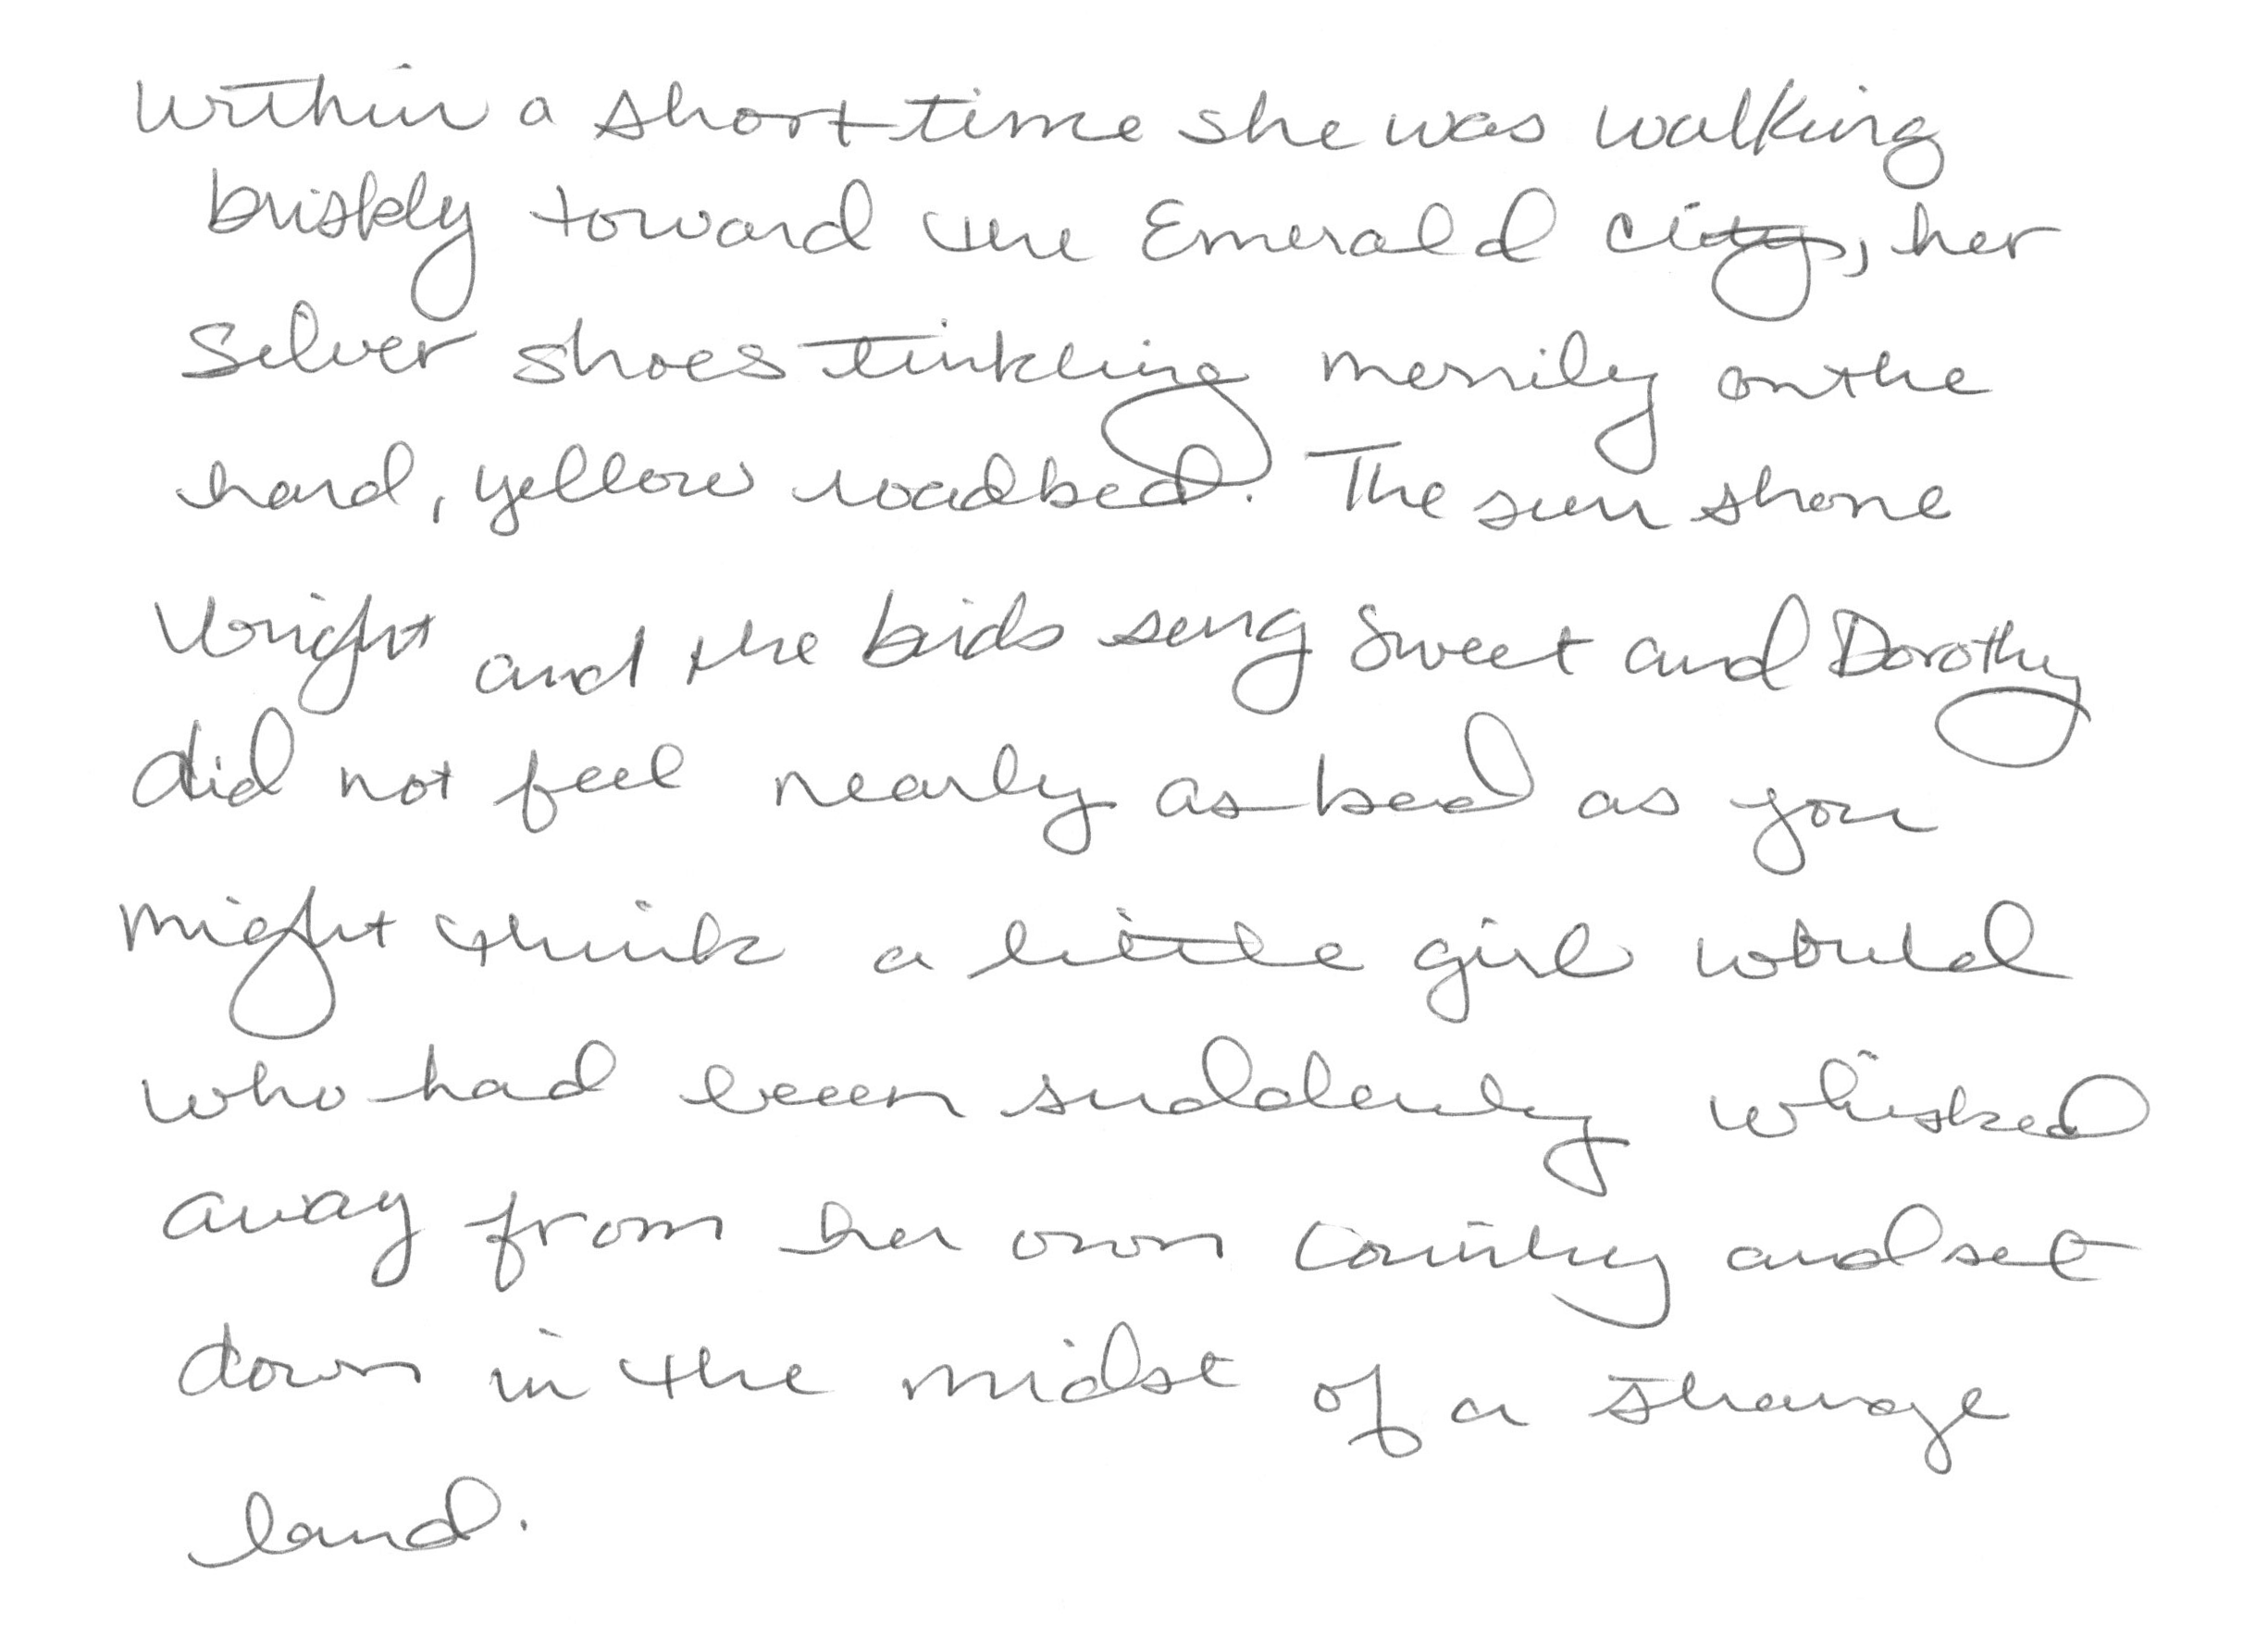 Within a short time she was walking
briskly toward the Emerald City, her
Silver shoes tinkling merrily on the
hard, yellow roadbed. The sun shone
bright and the birds sung sweet and Dorothy
did not feel nearly as bad as you
might think a little girl would
who had been suddenly whisked
away from her own country and set
down in the midst of a strange
land.